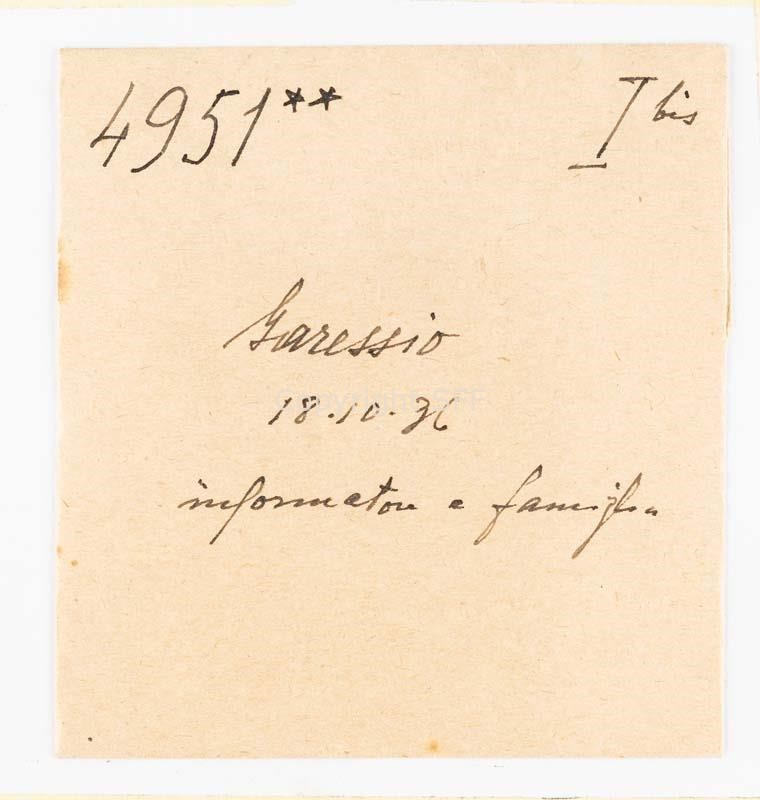 4951** I bis
Garessio
18.10.36
informatore e famiglia